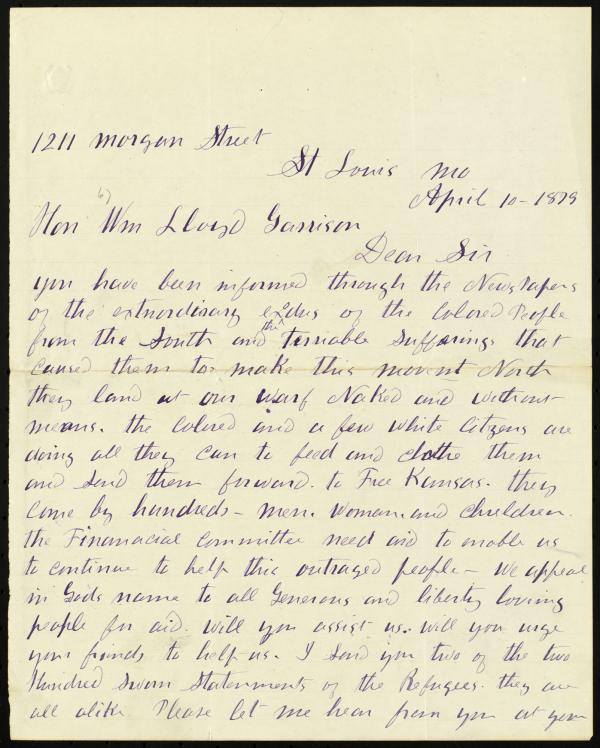 1211 Morgan Street
St Louis Mo
April 10 - 1879
Hon Wm Lloyd Garrison
Dear Sir
you have been informed through the Newspapers
of the extrordisary exodus of the Colored People
from the South and the terriable Sufferings that
caused them to make this movent North
they land at our warf Naked and without
means. the Colored and a few white Citizens are
doing all they can to feed and clothe them
and Send them forward. to Free Kansas. they
come by hundreds - men. Woman. and Chrildren.
the Finanacial Committee need aid to enable us
to continue to help this outraged people - We appeal
in Gods name to all Generous and liberty loveing
people for aid. will you assist us. will you urge
your friends to help us. I Send you two of the two
Hundred Sworn Statements of the Refugees. they are
all alike Please let me hear from you at your